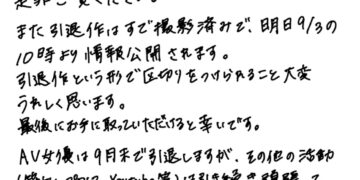 是非ご覧ください。
また引退作はすで撮影済みで、明日9/3の
10時より情報公開されます。
引退作という形で区切りをつけられること大変
うれしく思います。
最後にお手に取っていただけると幸いです。
AV女優は9月末で引退しますが、その他の活動